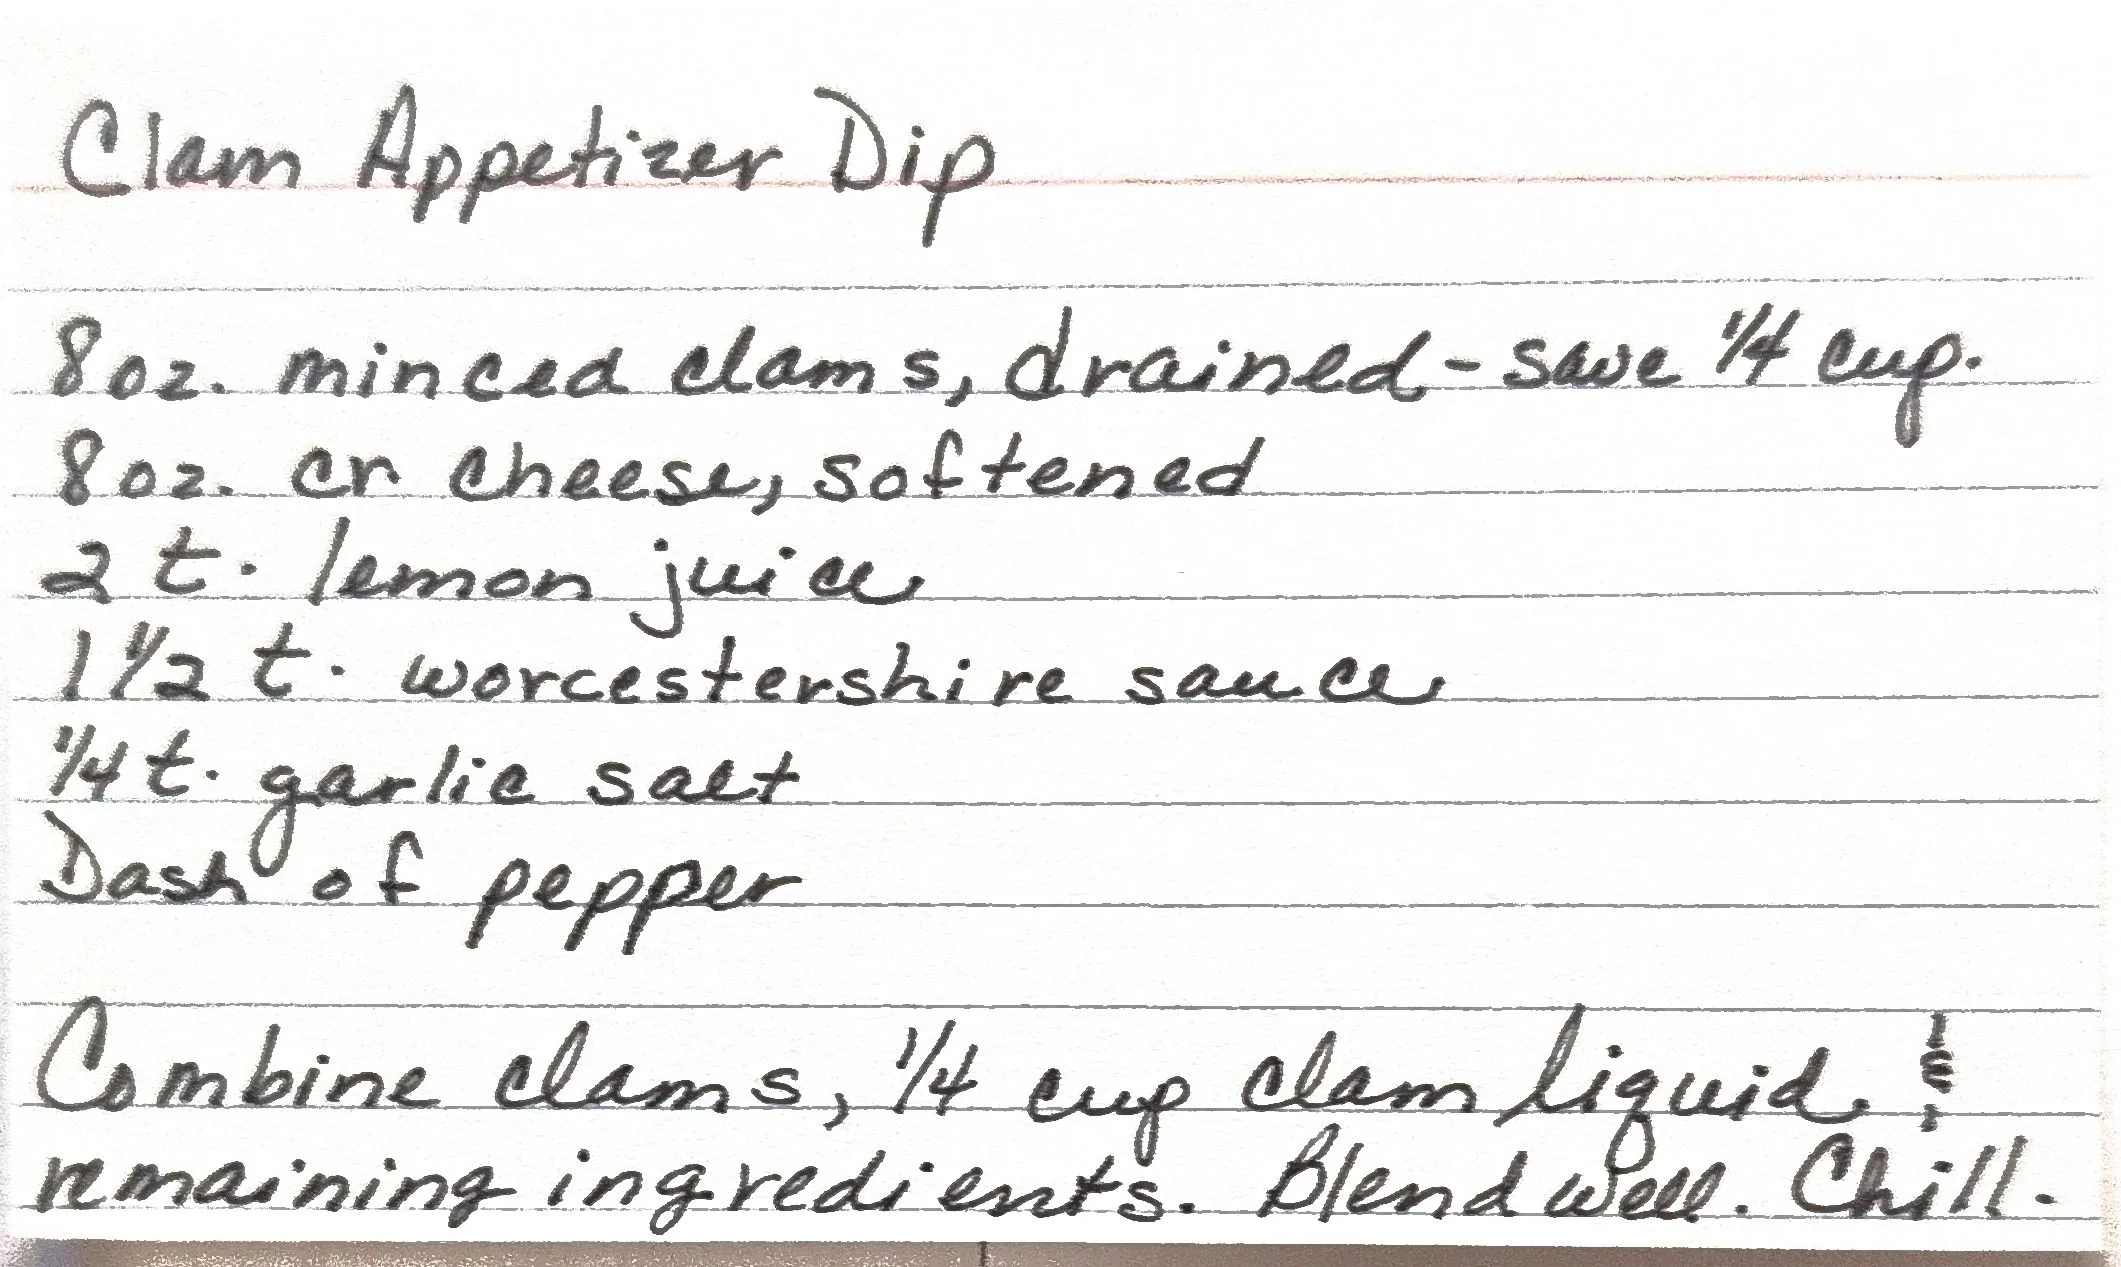 Clam Appetizer Dip
8 oz. minced clams, drained - save 1/4 cup.
8 oz. cr cheese, softened
2 t. lemon juice
1 1/2 t. worcestershire sauce
1/4 t. garlic salt
Dash of pepper
Combine clams, 1/4 cup clam liquid &
remaining ingredients. Blend well. Chill.